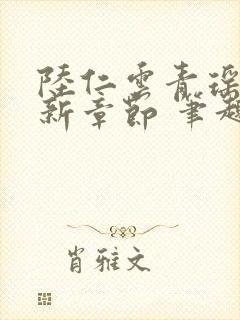 陸仁雲青瑶
新章節 筆趣
肖雅文